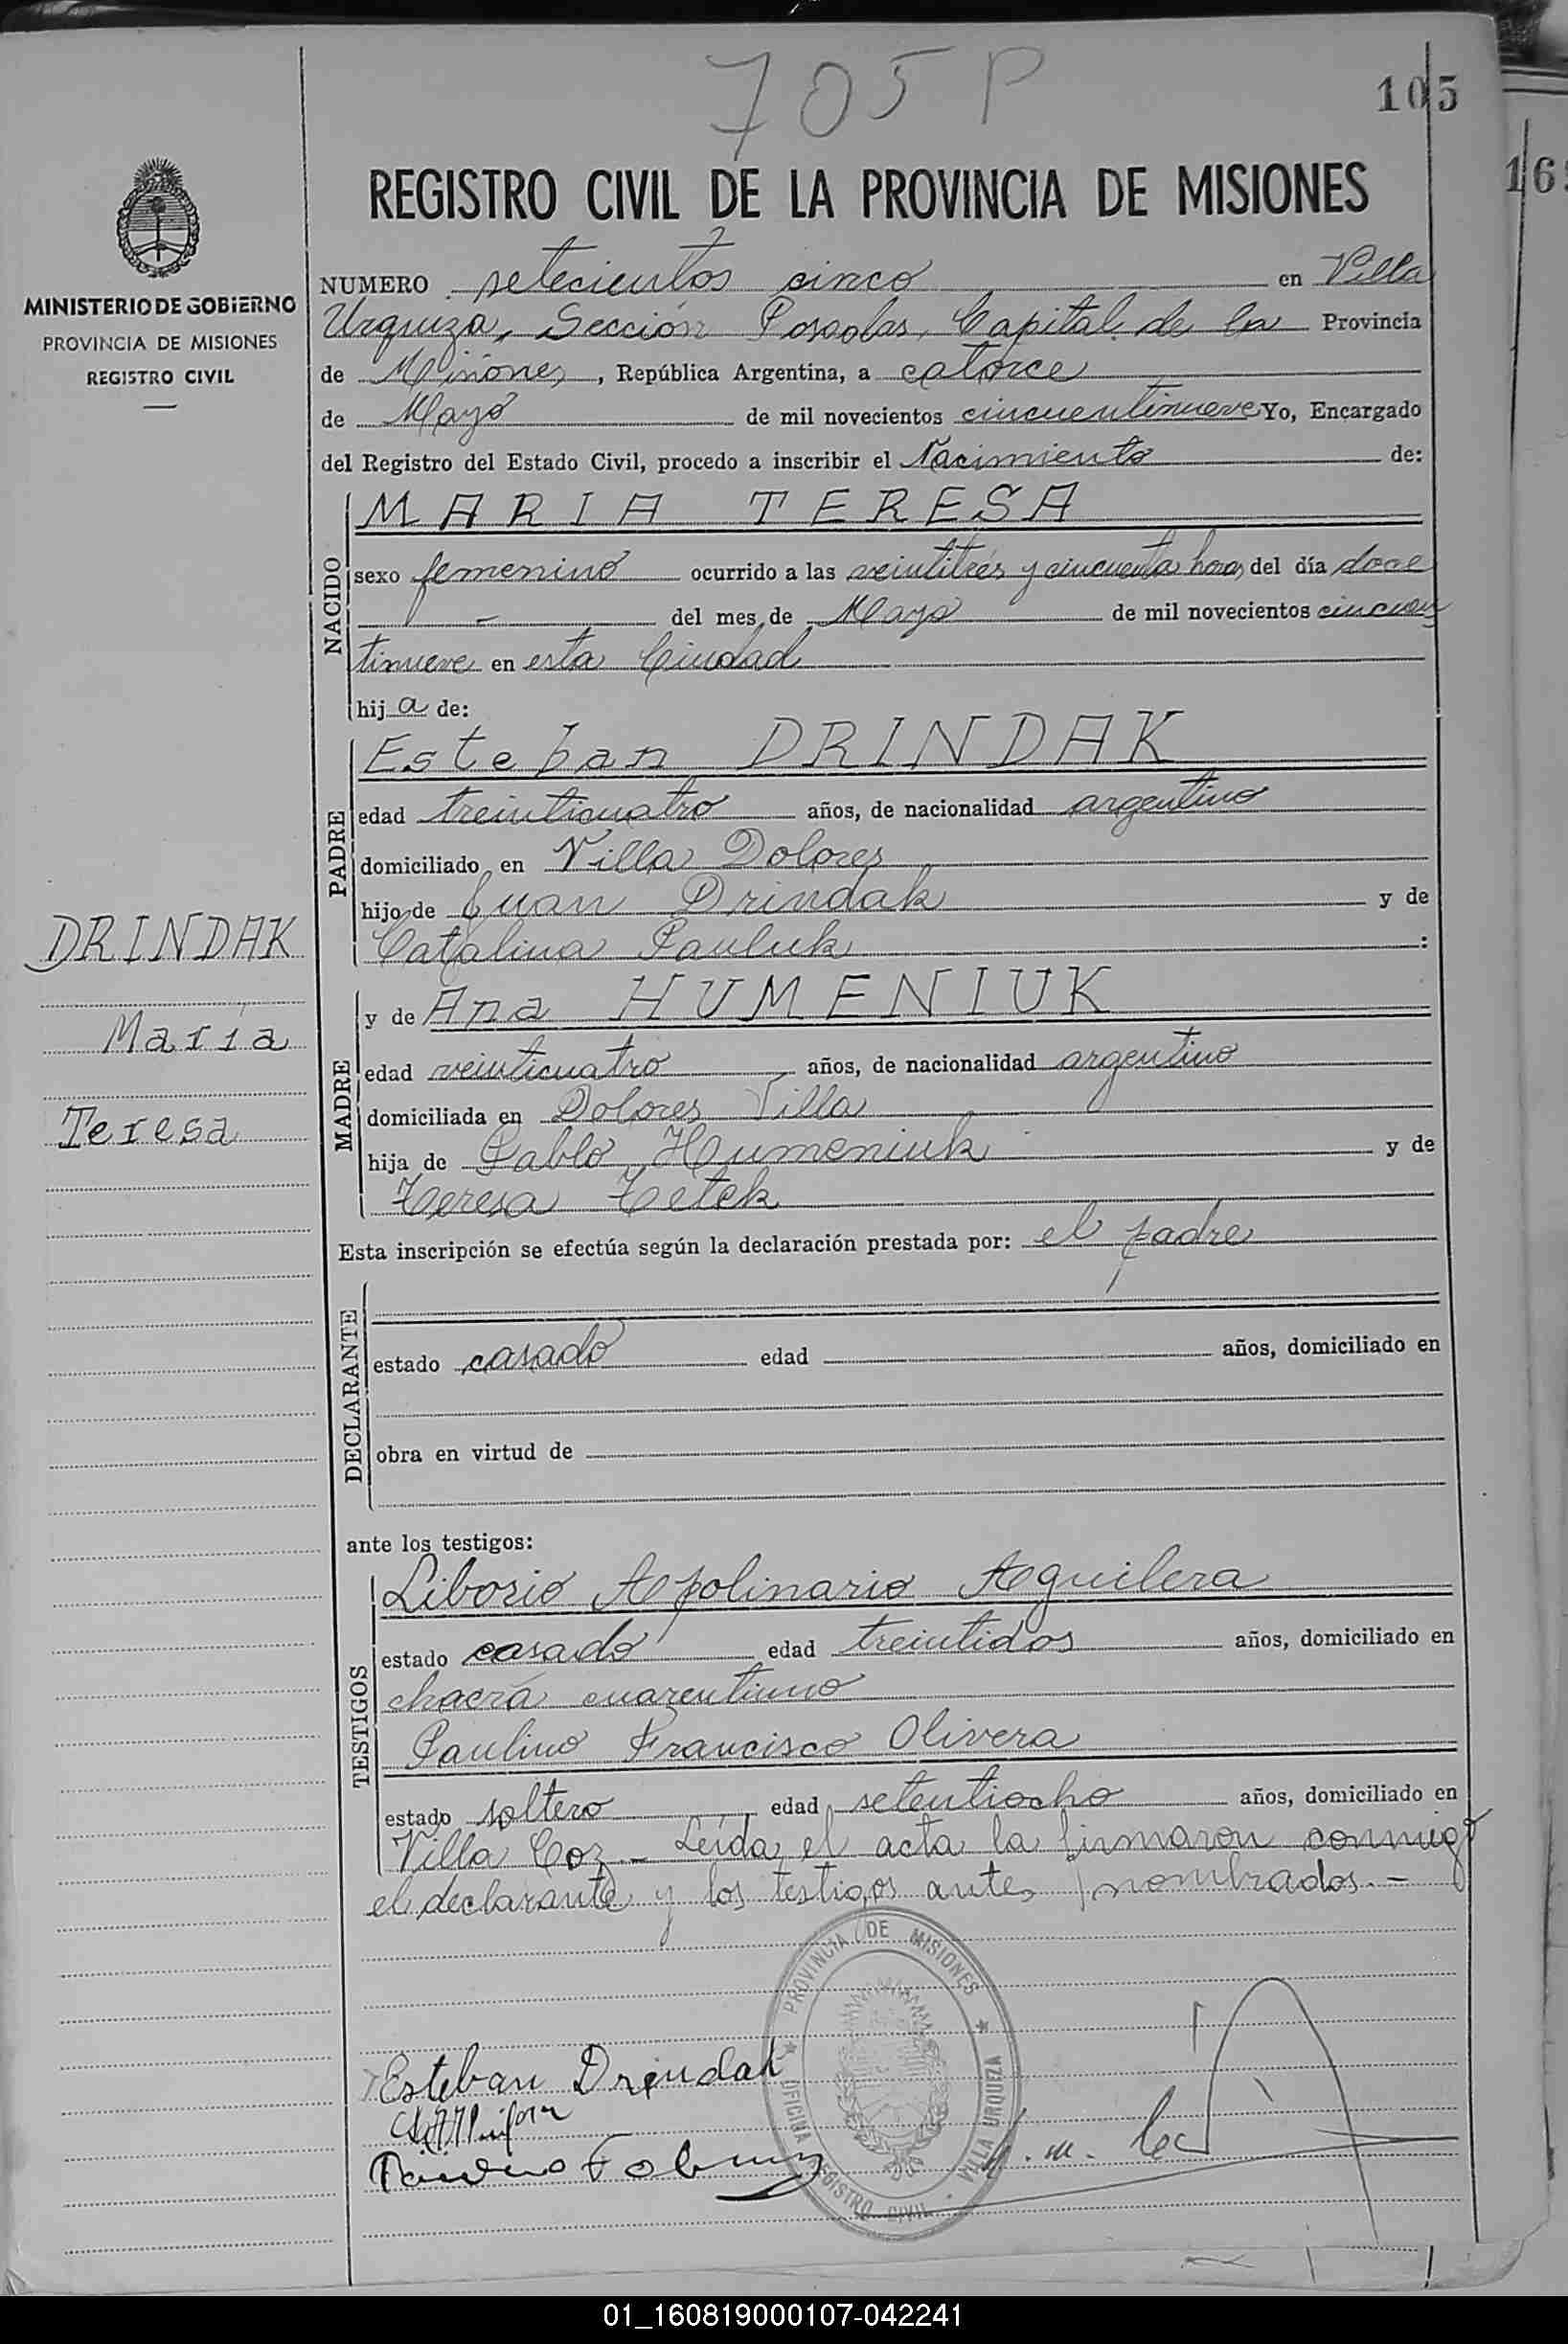 705 P
105
16
REGISTRO CIVIL DE LA PROVINCIA DE MISIONES
MINISTERIO DE GOBIERNO
PROVINCIA DE MISIONES
REGISTRO CIVIL
NUMERO setecientos cinco en Villa
Urquiza, Sección Posadas, Capital de la Provincia
de Misiones, República Argentina, a catorce
de Mayo de mil novecientos cincuentinueve Yo, Encargado
del Registro del Estado Civil, procedo a inscribir el Nacimiento de:
NACIDO
MARIA TERESA
sexo femenino ocurrido a las veintitrés y cincuenta horas del día doce
- del mes de Mayo de mil novecientos cincuen
tinueve en esta Ciudad
hija de:
PADRE
Esteban DRINDAK
edad treinticuatro años, de nacionalidad argentino
domiciliado en Villa Dolores
hijo de Juan Drindak y de
Catalina Pauluk :
DRINDAK
Maria
Teresa
MADRE
y de Ana HUMENIUK
edad veinticuatro años, de nacionalidad argentino
domiciliada en Dolores Villa
hija de Pablo Humeniuk y de
Teresa Tetek
Esta inscripción se efectúa según la declaración prestada por: el padre
DECLARANTE
estado casado edad años, domiciliado en
obra en virtud de
ante los testigos:
TESTIGOS
Liborio Apolinario Aguilera
estado casado edad treintidos años, domiciliado en
chacra cuarentiuno
Paulino Francisco Olivera
estado soltero edad setentiocho años, domiciliado en
Villa Coz - Leída el acta la firmaron conmigo
el declarante y los testigos antes nombrados.-
PROVINCIA DE MISIONES
OFICINA REGISTRO CIVIL VILLA URQUEZA
Esteban Drindak
01_160819000107-042241